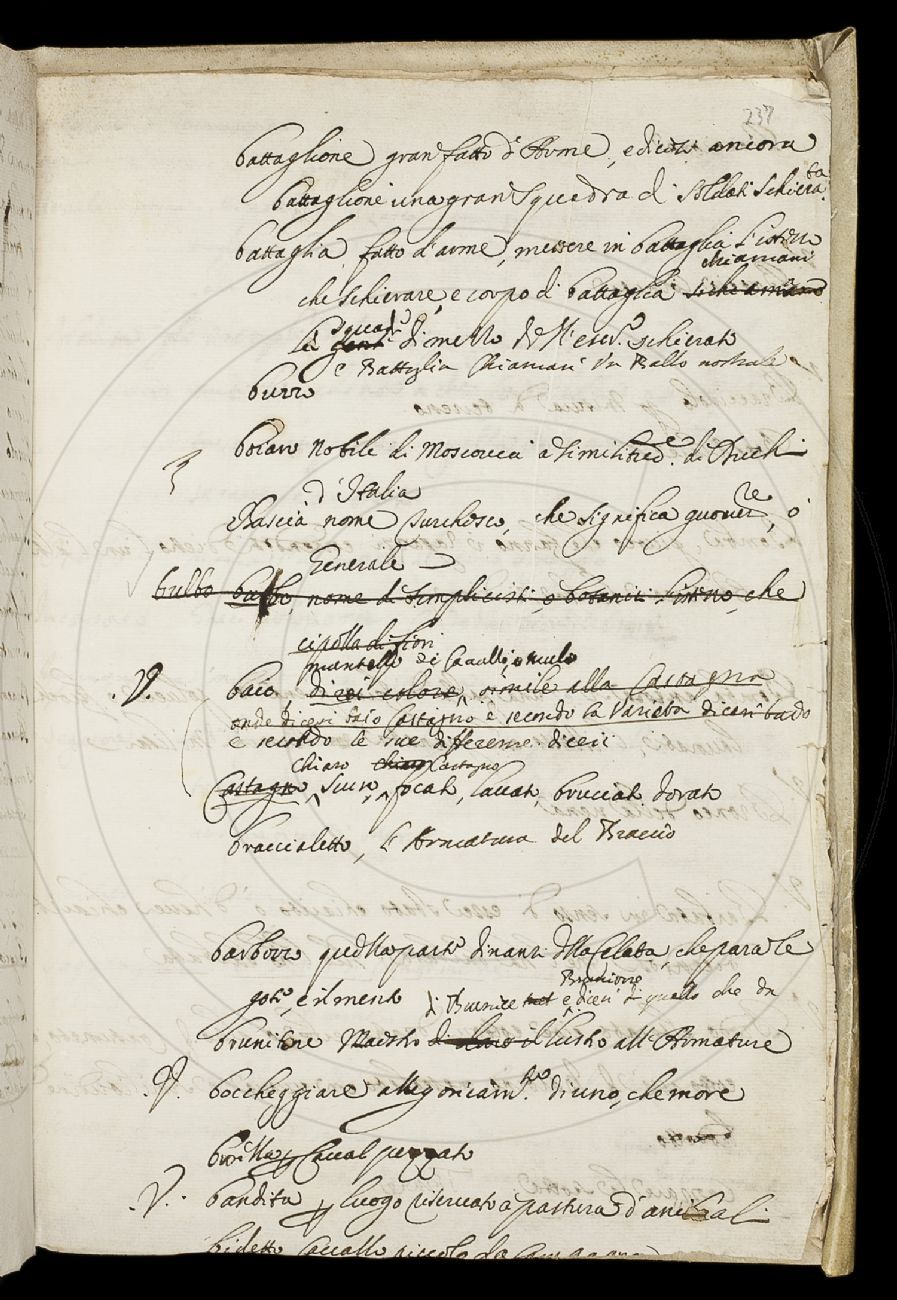 237
battaglione gran fatto d'Arme, e dicesi ancora
battaglione una gran squadra di soldati schierata.
battaglia fatto d'arme, mettere in battaglia
chiamasi
che schierare, e corpo di battaglia si chiamano
la squadr.
di mezzo dell'eserc.o schierato
e Battaglia Chiamasi Un Ballo nostrale
burro
boiaro nobile di Moscovia a similitud.e di Duchi
d'Italia
Bascià nome turchesco, che significa guover.re, ò
Generale
bulbo bulbo nome di semplicisti, o botanici che
cipolla di fiori
mantello di Cavallo, o mulo
.V. baio, di colore, simile alla Castagna
onde dicesi baio Castagno e secondo la varietà dicesi baio
e secondo le sue differenze dicesi
chiaro chiaro Castagno
Castagno, scuro, focato, lavato, bruciato, dorato
braccialetto, l'Armatura del Braccio
barbozzo quella parte dinanzi della Celata, che para le
gote, e il mento
di Bunice e dicesi di quello che da
brunitore Maestro il lustro all'Armature
.V. boccheggiare allegoricam.to di uno, che more
Cavallo pezzato
.V. bandita luogo riservato a pastura d'animali
bidetto Cavallo piccolo da Campagna